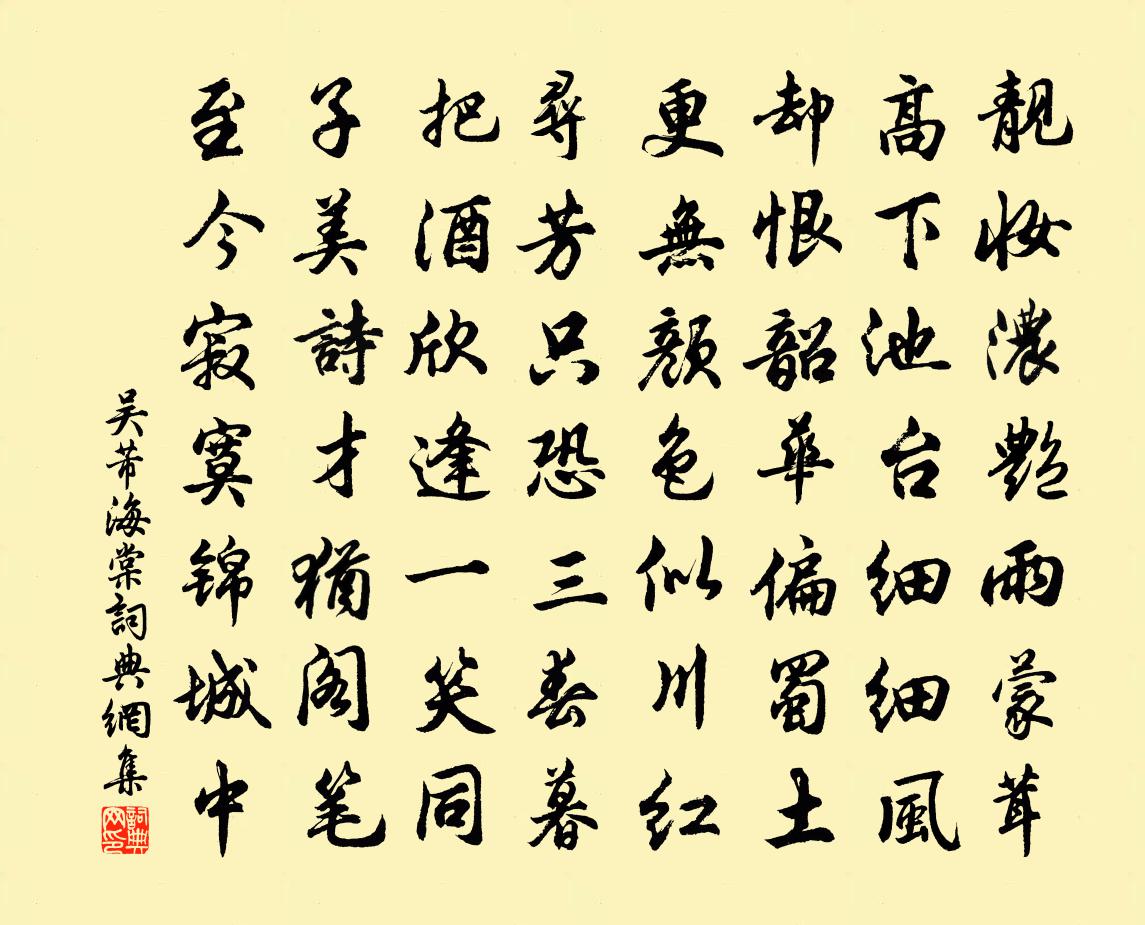 靚妝濃艷雨蒙茸
高下池台细细風
却恨韶華偏蜀土
更無顏色似川紅
尋芳只恐三春暮
把酒欣逢一笑同
子美詩才猶阁笔
至今寂寞锦城中
吴芾海棠詞典網集
詞典網印